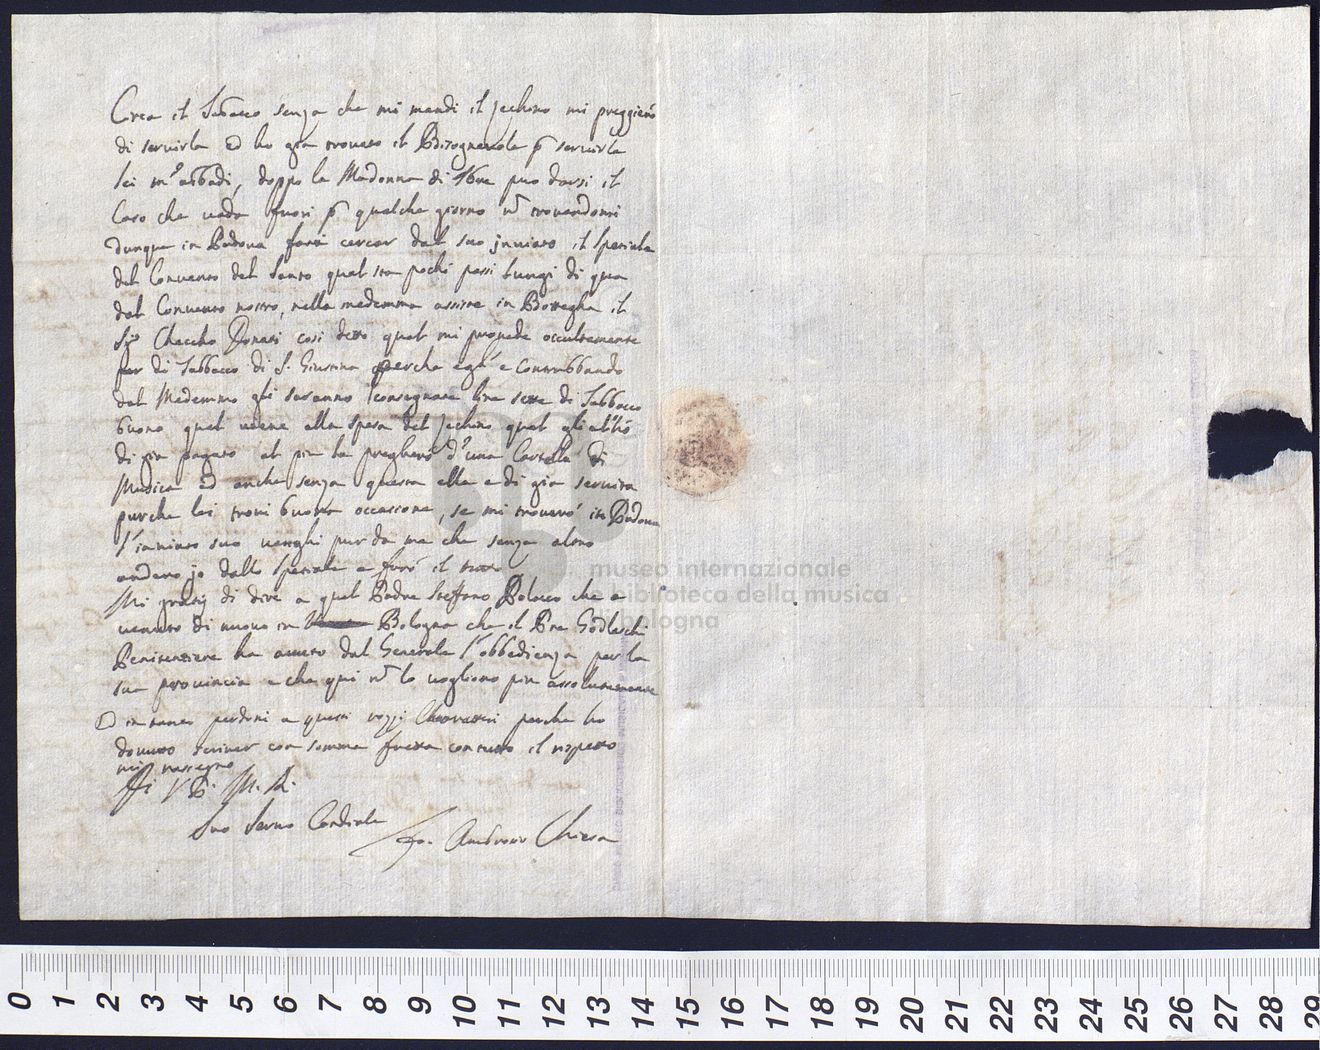 Circa il Tabacco senza che mi mandi il zechino mi preggierò
di servirla ed ho già trovato il Bisognevole p servirla
lei m.º abbadi, doppo la Madonna di 7bre puo darsi il
Caso che vada fuori p qualche giorno nõ trovandomi
dunque in Padova farà cercar dal suo inviato il speciale
del Convento del Santo qual sta pochi passi lungi di qua
dal Convento nostro, nella medemma assiste in Bottegha il
Sig.r Checcho Donati così detto qual mi provede occultamente
per di Tabbacco di S. Giustina perche egl' è contrabbando
dal Medemmo gli saranno consegnate lire sette di Tabbacco
buono qual viene alla spesa del zechino qual gli
di più pagato al più la pregherò d'una Cartella di
Musica ed anche senza questa ella è di già servita
purche lei trovi buona occasione, se mi troverò in Padova
l'inviato suo venghi pur da me che senza altro
anderò jo dallo speciale e farò il tutto
Mi grazij di dire a quel Padre Steffano Polacco che è
venuto di nuovo in Bologna che il Pre
Penitenziere ha avuto dal Generale l'obbedienza per la
sua provincia e che qui nõ lo vogliono più assolutamente
in tanto perdoni a questi rozzi Caratteri perche ho
dovuto scriver con somma fretta con tutto il rispetto
mi rassegno
Di V. P. M. R.
Suo Servo Cordiale
Fr. Ambrosio Chiesa
museo internazionale
e biblioteca della musica
di bologna
0 1 2 3 4 5 6 7 8 9 10 11 12 13 14 15 16 17 18 19 20 21 22 23 24 25 26 27 28 29